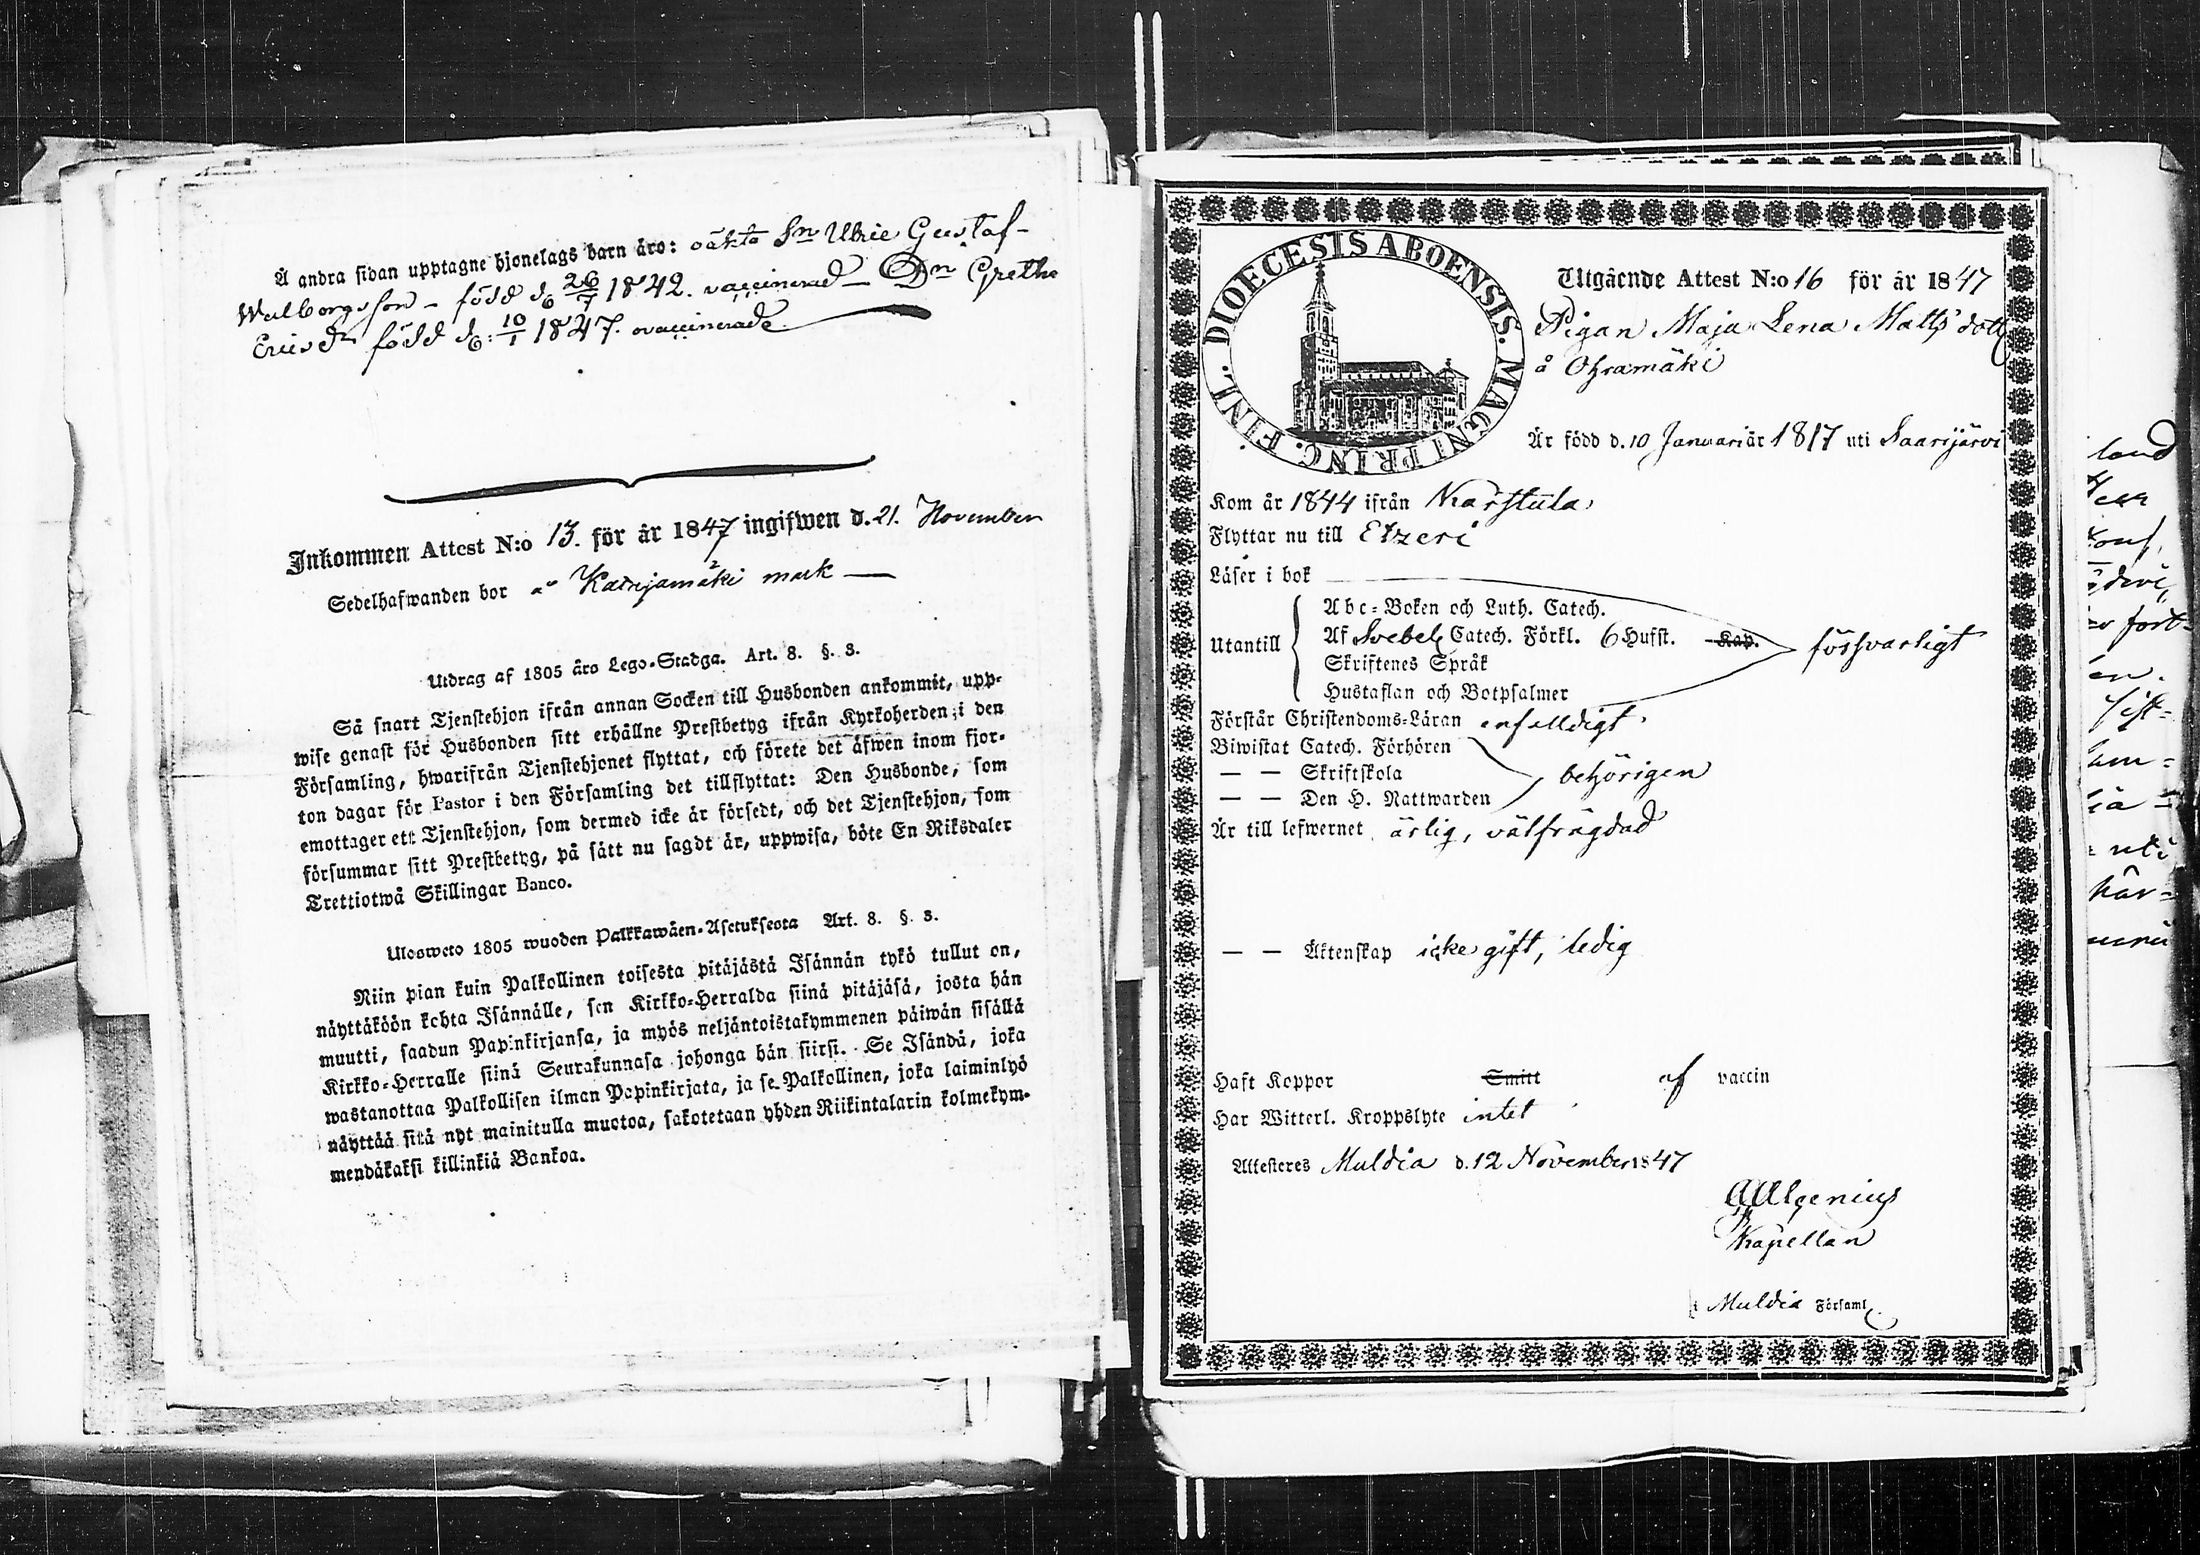 Å andra sidan upptagne hjonelags barn äro: oäkta Sn Ulric Gustaf
Walborgsson – född d. 26/7 1842. vaccinerad – Dn Gretha
Ericsdr född d: 10/1 1847. ovaccinerade
Inkommen Attest N:o 13. för år 1847 ingifwen d. 21. November
Sedelhafwanden bor å Katrijamäki mark —
Utdrag af 1805 års Lego-Stadga. Art. 8. §. 3.
Så snart Tjenstehjon ifrån annan Socken till Husbonden ankommit, upp-
wise genast för Husbonden sitt erhållne Prestbetyg ifrån Kyrkoherden i den
Församling, hwarifrån Tjenstehjonet flyttat, och förete det äfwen inom fjor-
ton dagar för Pastor i den Församling det tillflyttat: Den Husbonde, som
emottager ett Tjenstehjon, som dermed icke är försedt, och det Tjenstehjon, som
försummar sitt Prestbetyg, på sätt nu sagdt är, uppwisa, böte En Riksdaler
Trettiotwå Skillingar Banco.
Ulosweto 1805 wuoden Palkkawäen-Asetuksesta Art. 8. §. 3.
Niin pian kuin Palkollinen toisesta pitäjästä Isännän tykö tullut on,
näyttäköön kohta Isännälle, sen Kirkko-Herralda siinä pitäjäsä, josta hän
muutti, saadun Papinkirjansa, ja myös neljäntoistakymmenen päiwän sisällä
Kirkko-Herralle siinä Seurakunnasa johonga hän siirsi. Se Isändä, joka
wastanottaa Palkollisen ilman Papinkirjata, ja se Palkollinen, joka laiminlyö
näyttää sitä nyt mainitulla muotoa, sakotetaan yhden Riikintalarin kolmekym-
mendäkaksi killinkiä Bankoa.
DIOECESIS ABOENSIS. MAGNI PRINC. FINL.
Utgående Attest N:o 16 för år 1847
Pigan Maja Lena Matts dott
å Ohramäki
Är född d. 10 Januari år 1817 uti Saarijärvi
Kom år 1844 ifrån Karstula
Flyttar nu till Etzeri
Läser i bok
Abc-Boken och Luth. Catech.
Utantill Af Svebel Catech. Förkl. 6 Hufst. Kap. försvarligt
Skriftenes Språk
Hustaflan och Botpsalmer
Förstår Christendoms-Läran enfalldigt.
Biwistat Catech. Förhören
— — Skriftskola behörigen
— — Den H. Nattwarden
Är till lefwernet ärlig, välfrägdad
— — Äktenskap icke gift, ledig
Haft Koppor Smitt af vaccin
Har Witterl. Kroppslyte intet
Attesteres Muldia d. 12 November 1847
Kapellan
i Muldia Församl.
land
fort-
sist-
uti
här-